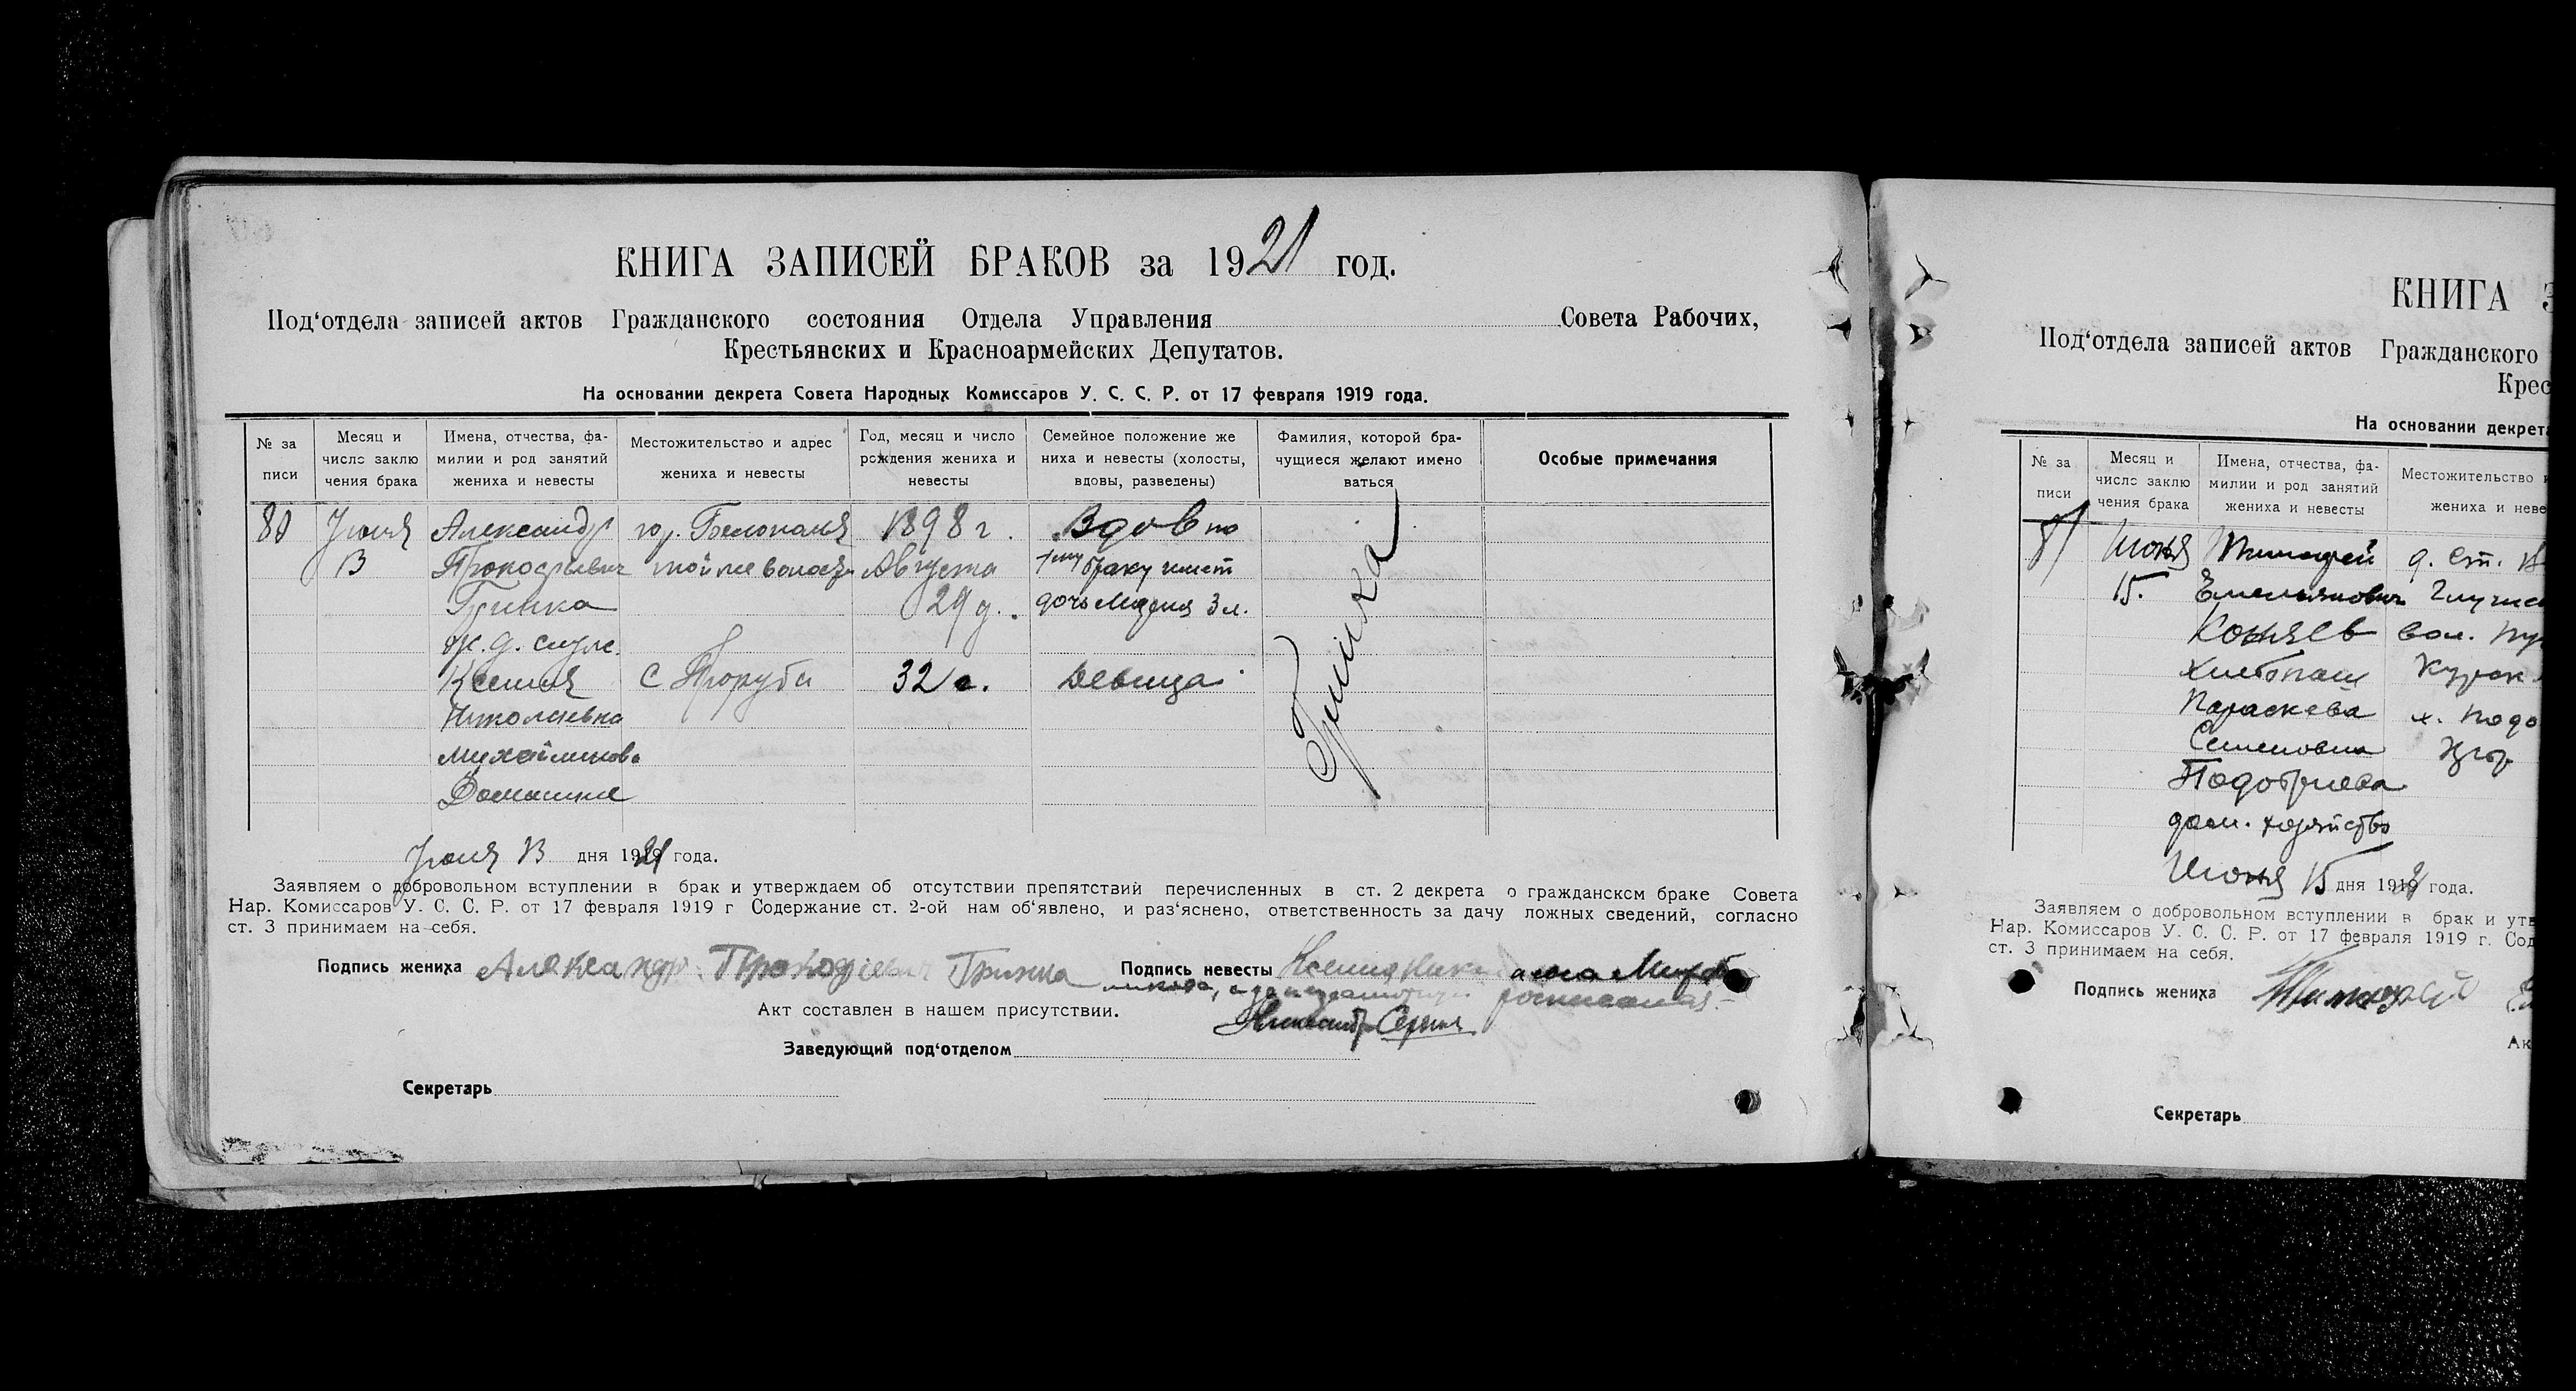 КНИГА ЗАПИСЕЙ БРАКОВ за 1921 год.
Под‘отдела записей актов Гражданского состояния Отдела Управления Совета Рабочих,
Крестьянских и Красноармейских Депутатов.
На основании декрета Совета Народных Комиссаров У. С. С. Р. от 17 февраля 1919 года.
№ за писи
Месяц и число заклю чения брака
Имена, отчества, фа- милии и род занятий жениха и невесты
Местожительство и адрес жениха и невесты
Год, месяц и число рождения жениха и невесты
Семейное положение же ниха и невесты (холосты, вдовы, разведены)
Фамилия, которой бра- чущиеся желают имено ваться
Особые примечания
80 Июня Александр гор. Белополя 1898 г. Вдов по
13 Прокофиевич той же волости Августа 1му браку имеет
Гринка 29 д. дочь Мария 3 л.
ж. д. служ.
Ксения с Проруби 32 г. Девица
Николаевна
Михайликова
Домашние
Гринка
Июня 13 дня 1921 года.
Заявляем о добровольном вступлении в брак и утверждаем об отсутствии препятствий перечисленных в ст. 2 декрета о гражданском браке Совета
Нар. Комиссаров У. С. С. Р. от 17 февраля 1919 г Содержание ст. 2-ой нам об‘явлено, и раз‘яснено, ответственность за дачу ложных сведений, согласно
ст. 3 принимаем на себя.
Подпись жениха Александр Прокофиевич Гринка Подпись невесты Ксения
Акт составлен в нашем присутствии.
Заведующий под‘отделом
Секретарь
КНИГА З
Под‘отдела записей актов Гражданского
Крес
На основании декрета
№ за писи
Месяц и число заклю чения брака
Имена, отчества, фа- милии и род занятий жениха и невесты
Местожительство и жениха и неве
81 Июня Тимофей д. Ст.
15. Емельянович
Коняев вол.
хлебопаш Курск
Параскева х. Подо
Семеновна
Подобриева
дом. хозяйство
Июня 15 дня 1921 года.
Заявляем о добровольном вступлении в брак и утв
Нар. Комиссаров У. С. С. Р. от 17 февраля 1919 г. Сод
ст. 3 принимаем на себя.
Подпись жениха Тимофей
Ак
Секретарь